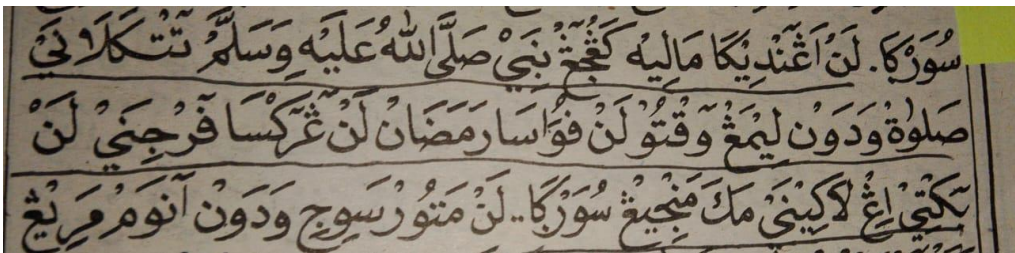 سُوَرْݢَا. لَنْ اَڠَنْدِيْكَا مَالِيْه كَڠْجٚڠْ نَبِيْ صَلَّى اللهُ عَلَيْهِ وَسَلَّمْ تَتْكَلَانَيْ
صَلَوٰةْ وَدَوْنْ لِيْمَڠْ وَقْتُوْ لَنْ فُوَاسَا رَمَضَانْ لَنْ ڠَرٚكْسَا فَرْجِنَيْ لَنْ
بَكْتِيْ اِڠْ لَاكِيْنَيْ مَكَ مَنْجِيْڠْ سُوَرْݢَا.. لَنْ مَتُوْرْ سَوِجِ وَدَوْنْ اَنَوْمْ مَرِيْڠْ